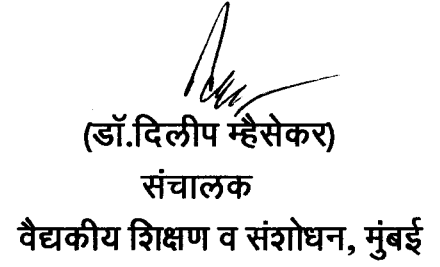 (डॉ.दिलीप म्हैसेकर)
संचालक
वैद्यकीय शिक्षण व संशोधन, मुंबई